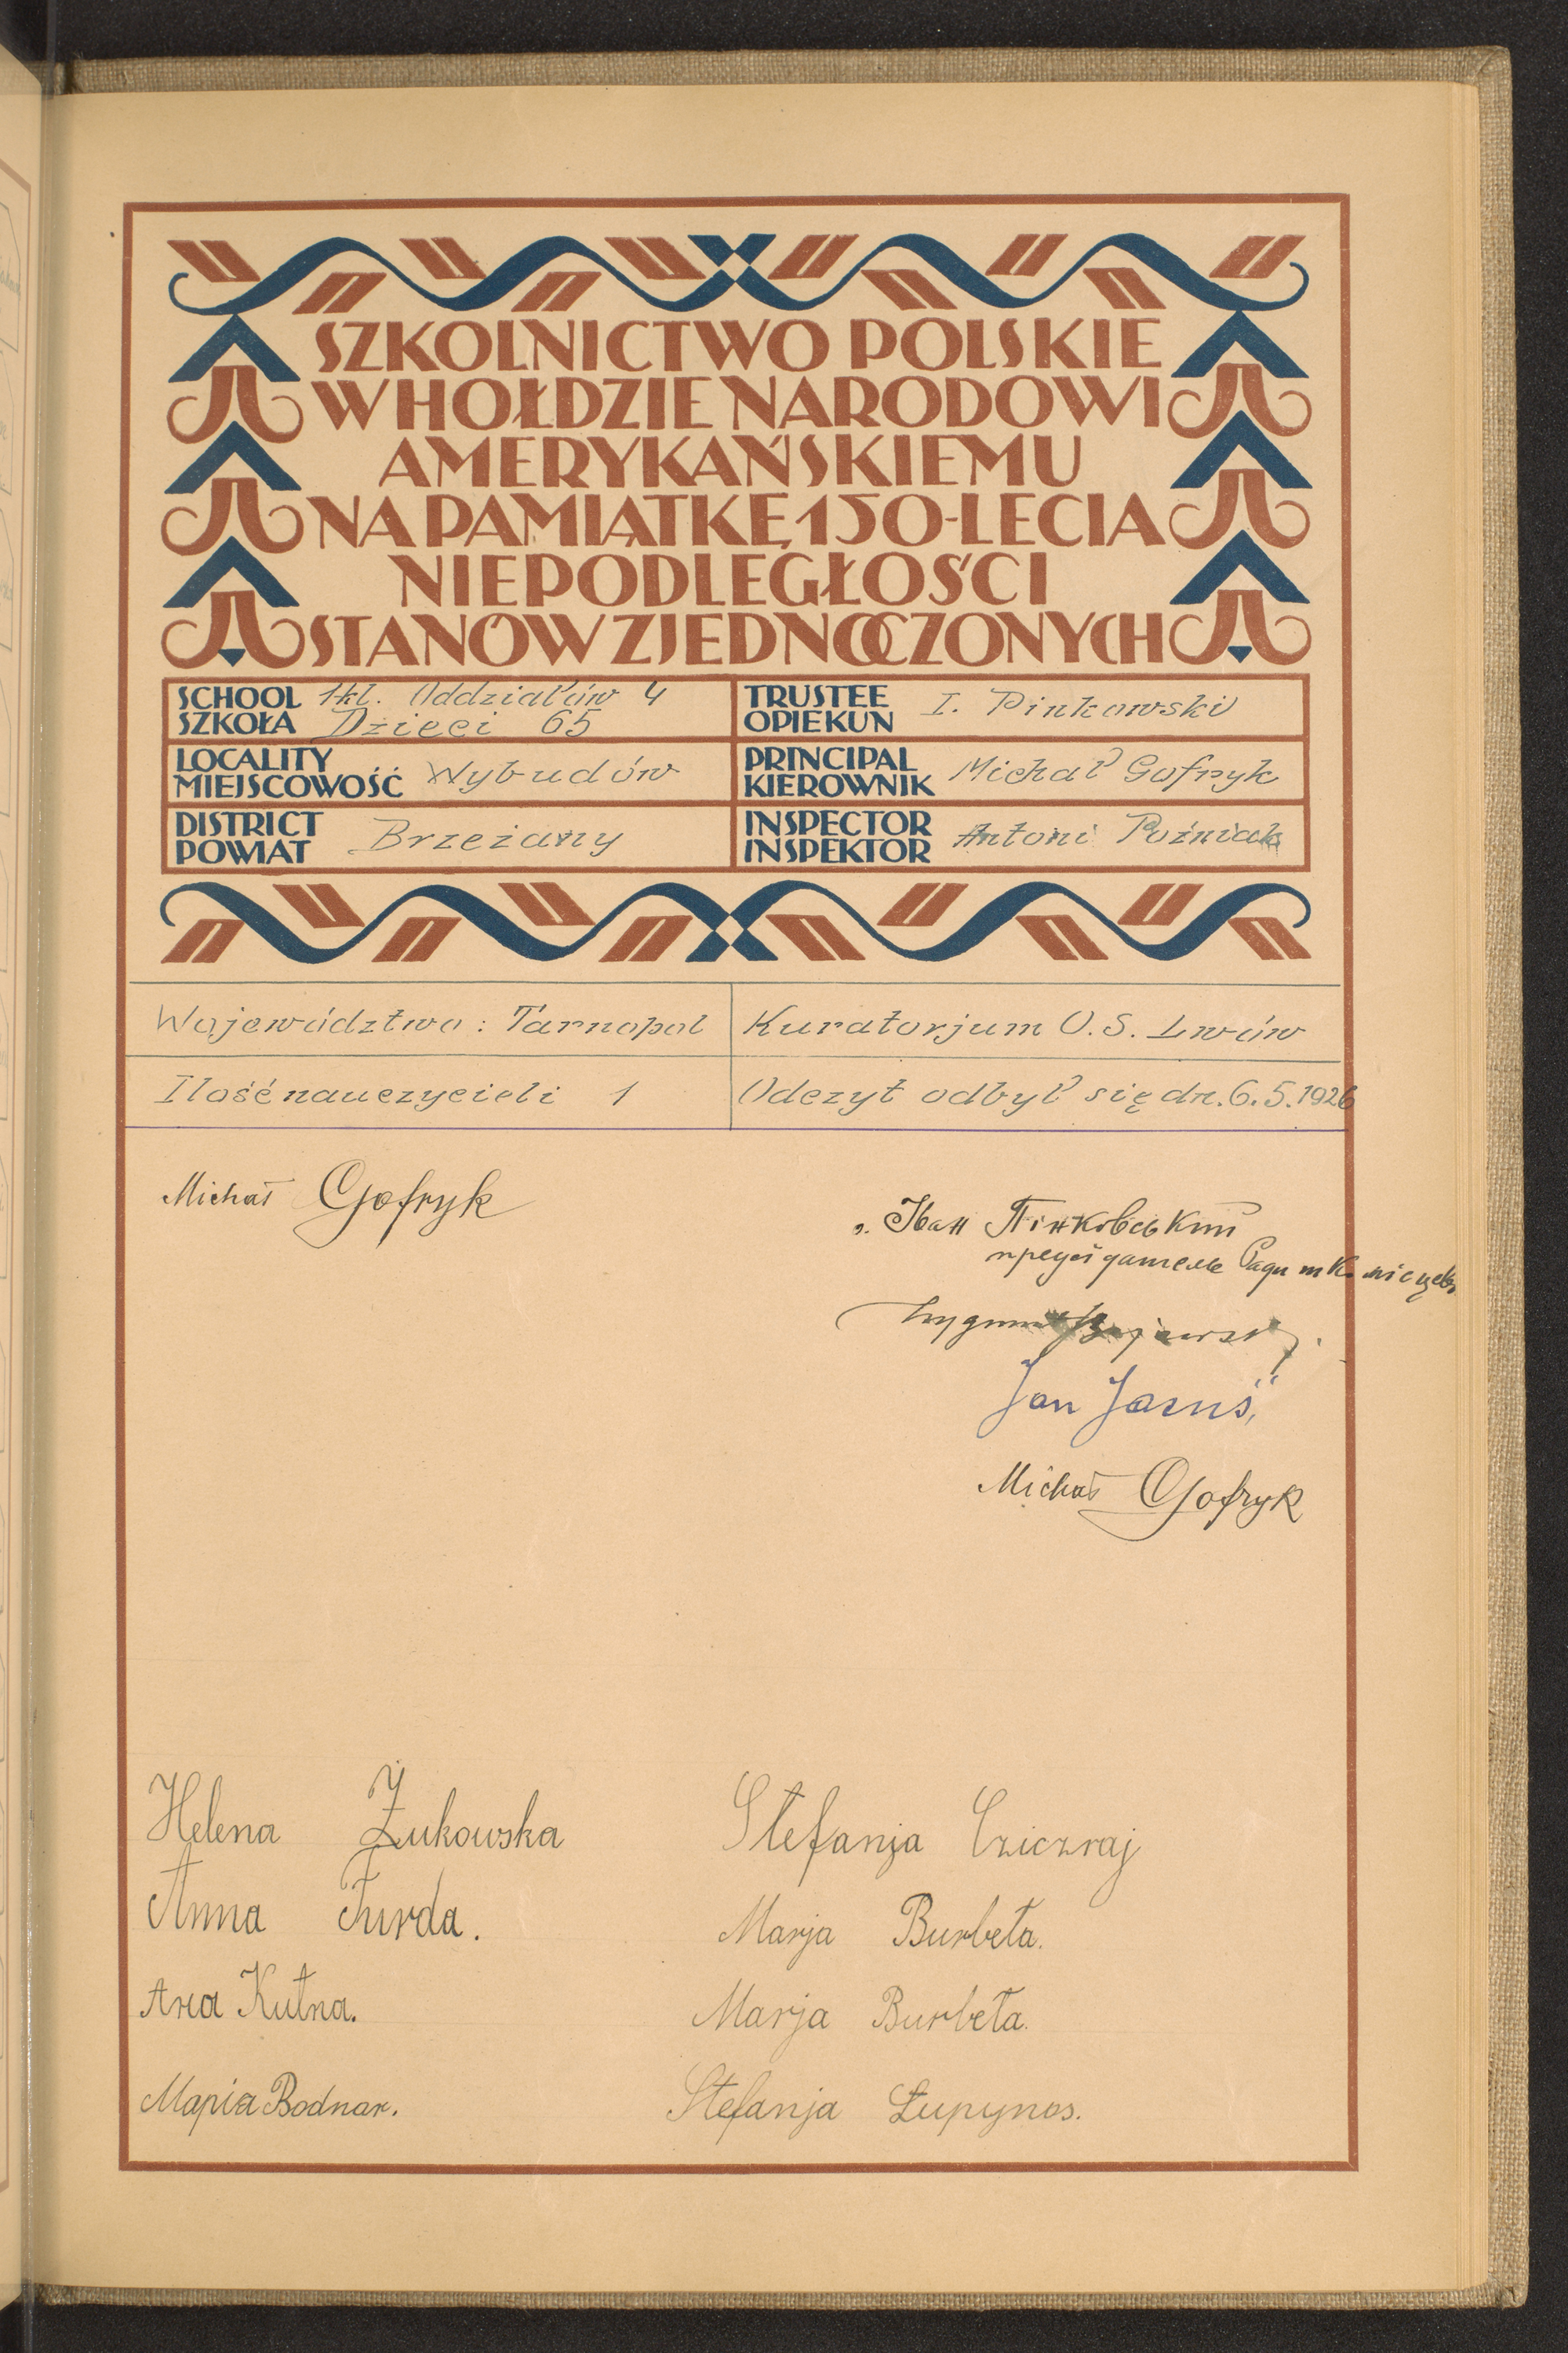 SZKOLNICTWO POLSKIE
W HOŁDZIE NARODOWI
AMERYKAŃSKIEMU
NA PAMIĄTKĘ 150-LECIA
NIEPODLEGŁOŚCI
STANÓW ZJEDNOCZONYCH
SCHOOL SZKOŁA 1kl. Oddziałów 4
Dzieci 65
TRUSTEE OPIEKUN I. Pinkowski
LOCALITY MIEJSCOWOŚĆ Wybudów
PRINCIPAL KIEROWNIK Michał Gofryk
DISTRICT POWIAT Brzeżany
INSPECTOR INSPEKTOR Antoni Poźniak
Województwo: Tarnopol
Kuratorjum O.S. Lwów
Ilość nauczycieli 1
Odczyt odbył się dn. 6.5.1926
Michał Gofryk
Іван Пінковський
Ради
Zygmunt
Jan Jaruś
Michał Gofryk
Helena Żukowska
Stefanja Cziczraj
Anna Furda.
Marja Burbeta.
Ana Kutna.
Marja Burbeta.
Mapia Bodnar.
Stefanja Łupynos.